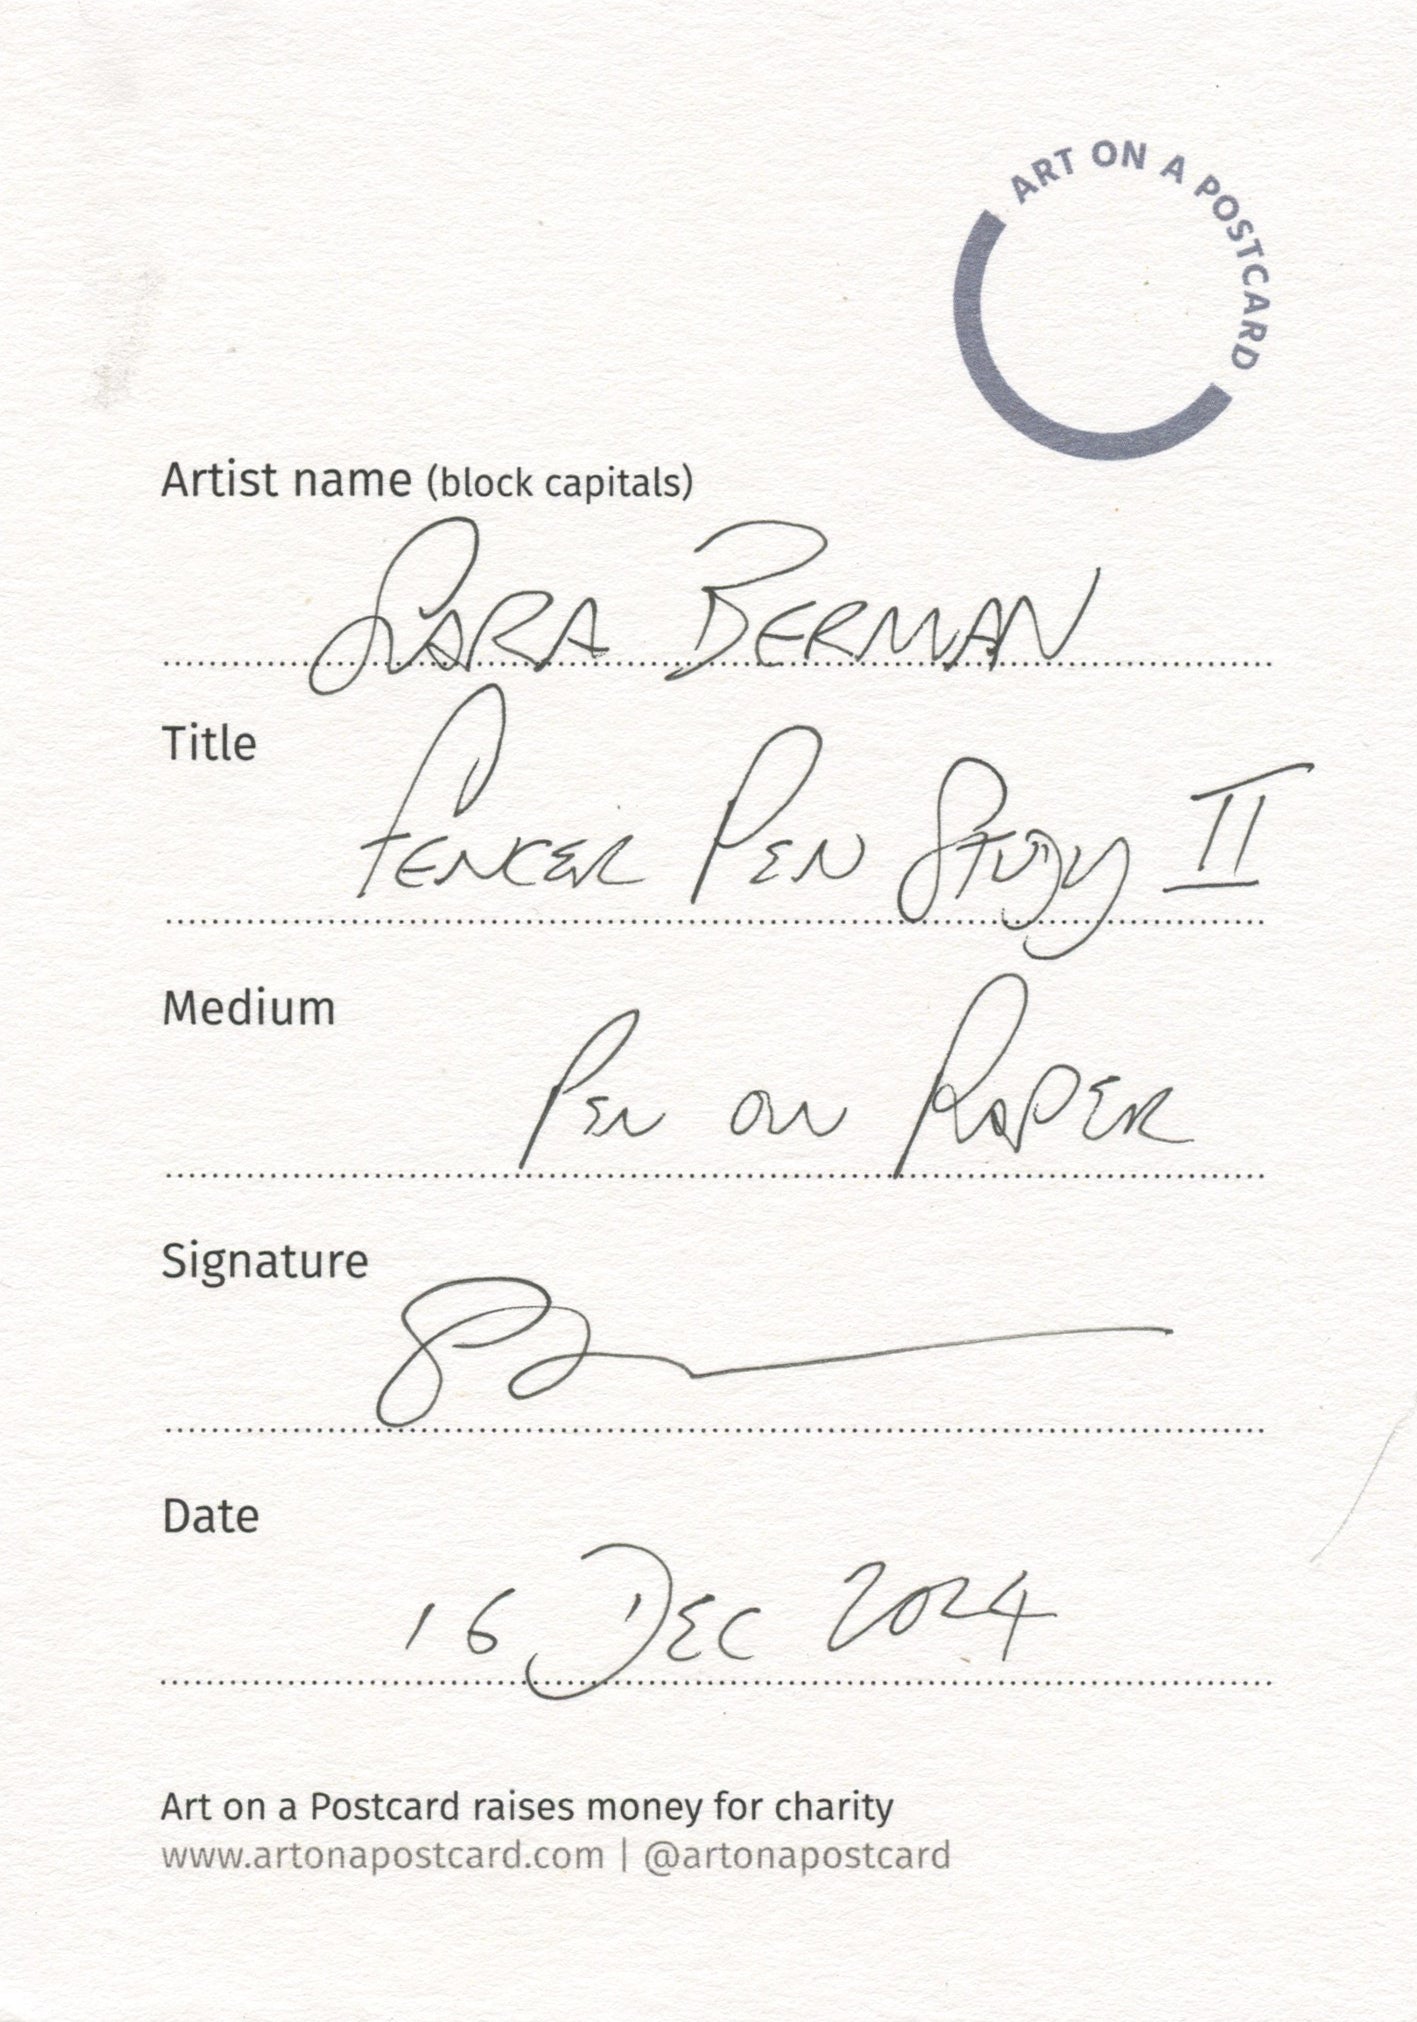 ART ON A POSTCARD
Artist name (block capitals)
SARA BERMAN
Title
FENCER PEN STUDY II
Medium
PEN ON PAPER
Signature
Date
16 DEC 2024
Art on a Postcard raises money for charity
www.artonapostcard.com | @artonapostcard